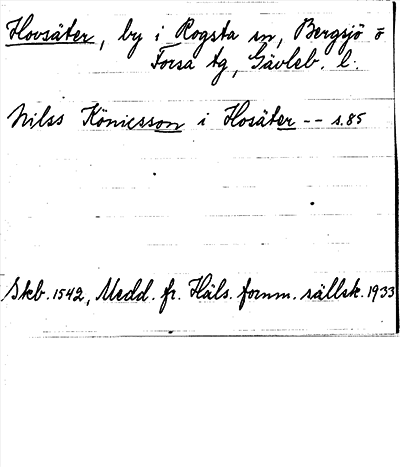 Hovsäter, by i Rogsta sn, Bergsjö o
Forsa tg, Gävleb. l.
Nilss Köniesson i Hosäter -- s. 85
Skb. 1542, Medd. fr. Häls. fornm. sällsk. 1933